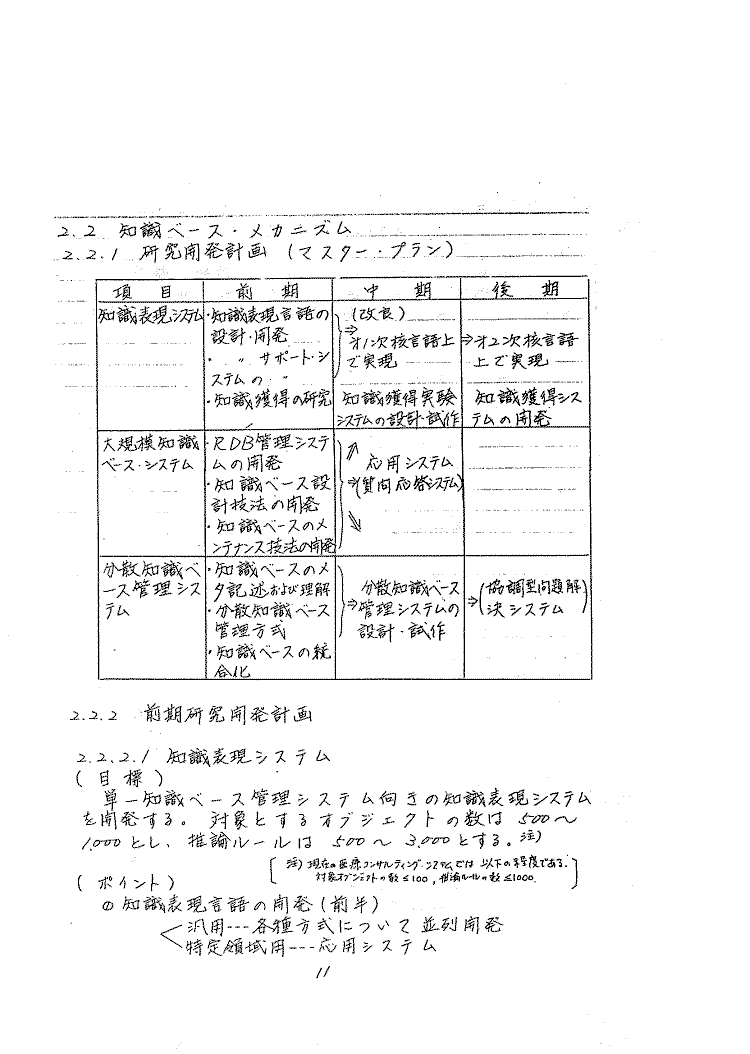 2.2 知識ベース・メカニズム
2.2.1 研究開発計画 (マスター・プラン)
項目 前期 中期 後期
知識表現システム
・知識表現言語の
設計・開発
・ 〃 サポート・シ
ステムの 〃
・知識獲得の研究
(改良)
⇒
オ1次核言語上
で実現
知識獲得実験
システムの設計・試作
⇒オ2次核言語
上で実現
知識獲得シス
テムの開発
大規模知識
ベース・システム
・RDB管理システ
ムの開発
・知識ベース設
計技法の開発
・知識ベースのメ
ンテナンス技法の開発
応用システム
⇒(質問応答システム)
分散知識ベ
ース管理シス
テム
・知識ベースのメ
タ記述および理解
・分散知識ベース
管理方式
・知識ベースの統
合化
分散知識ベース
⇒管理システムの
設計・試作
⇒(協調型問題解
決システム)
2.2.2 前期研究開発計画
2.2.2.1 知識表現システム
(目標)
単一知識ベース管理システム向きの知識表現システム
を開発する。対象とするオブジェクトの数は500〜
1,000とし、推論ルールは500〜3,000とする。注)
[注) 現在の医療コンサルティング・システムでは以下の程度である。
対象オブジェクトの数≤100, 推論ルールの数≤1000.]
(ポイント)
① 知識表現言語の開発(前半)
汎用---各種方式について並列開発
特定領域用---応用システム
11